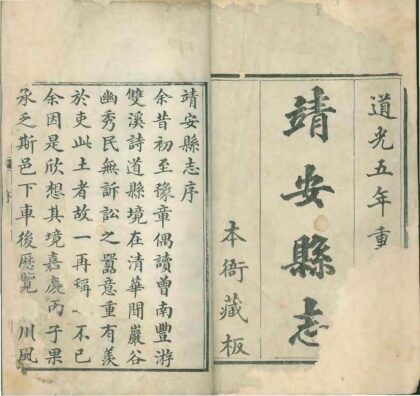 道光五年重
靖安縣志
本衙藏板
靖安縣志序
余昔初至豫章偶讀曾南豐游
雙溪詩道縣境在清華間巖谷
幽秀民無訴訟之囂意重有羨
於吏此土者故一再稱 不已
余因是欣想其境嘉慶丙子果
承乏斯邑下車後歷覽 川風
序